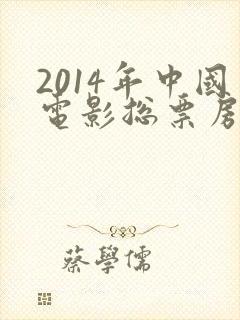 2014年中國
電影総票房
蔡學儒